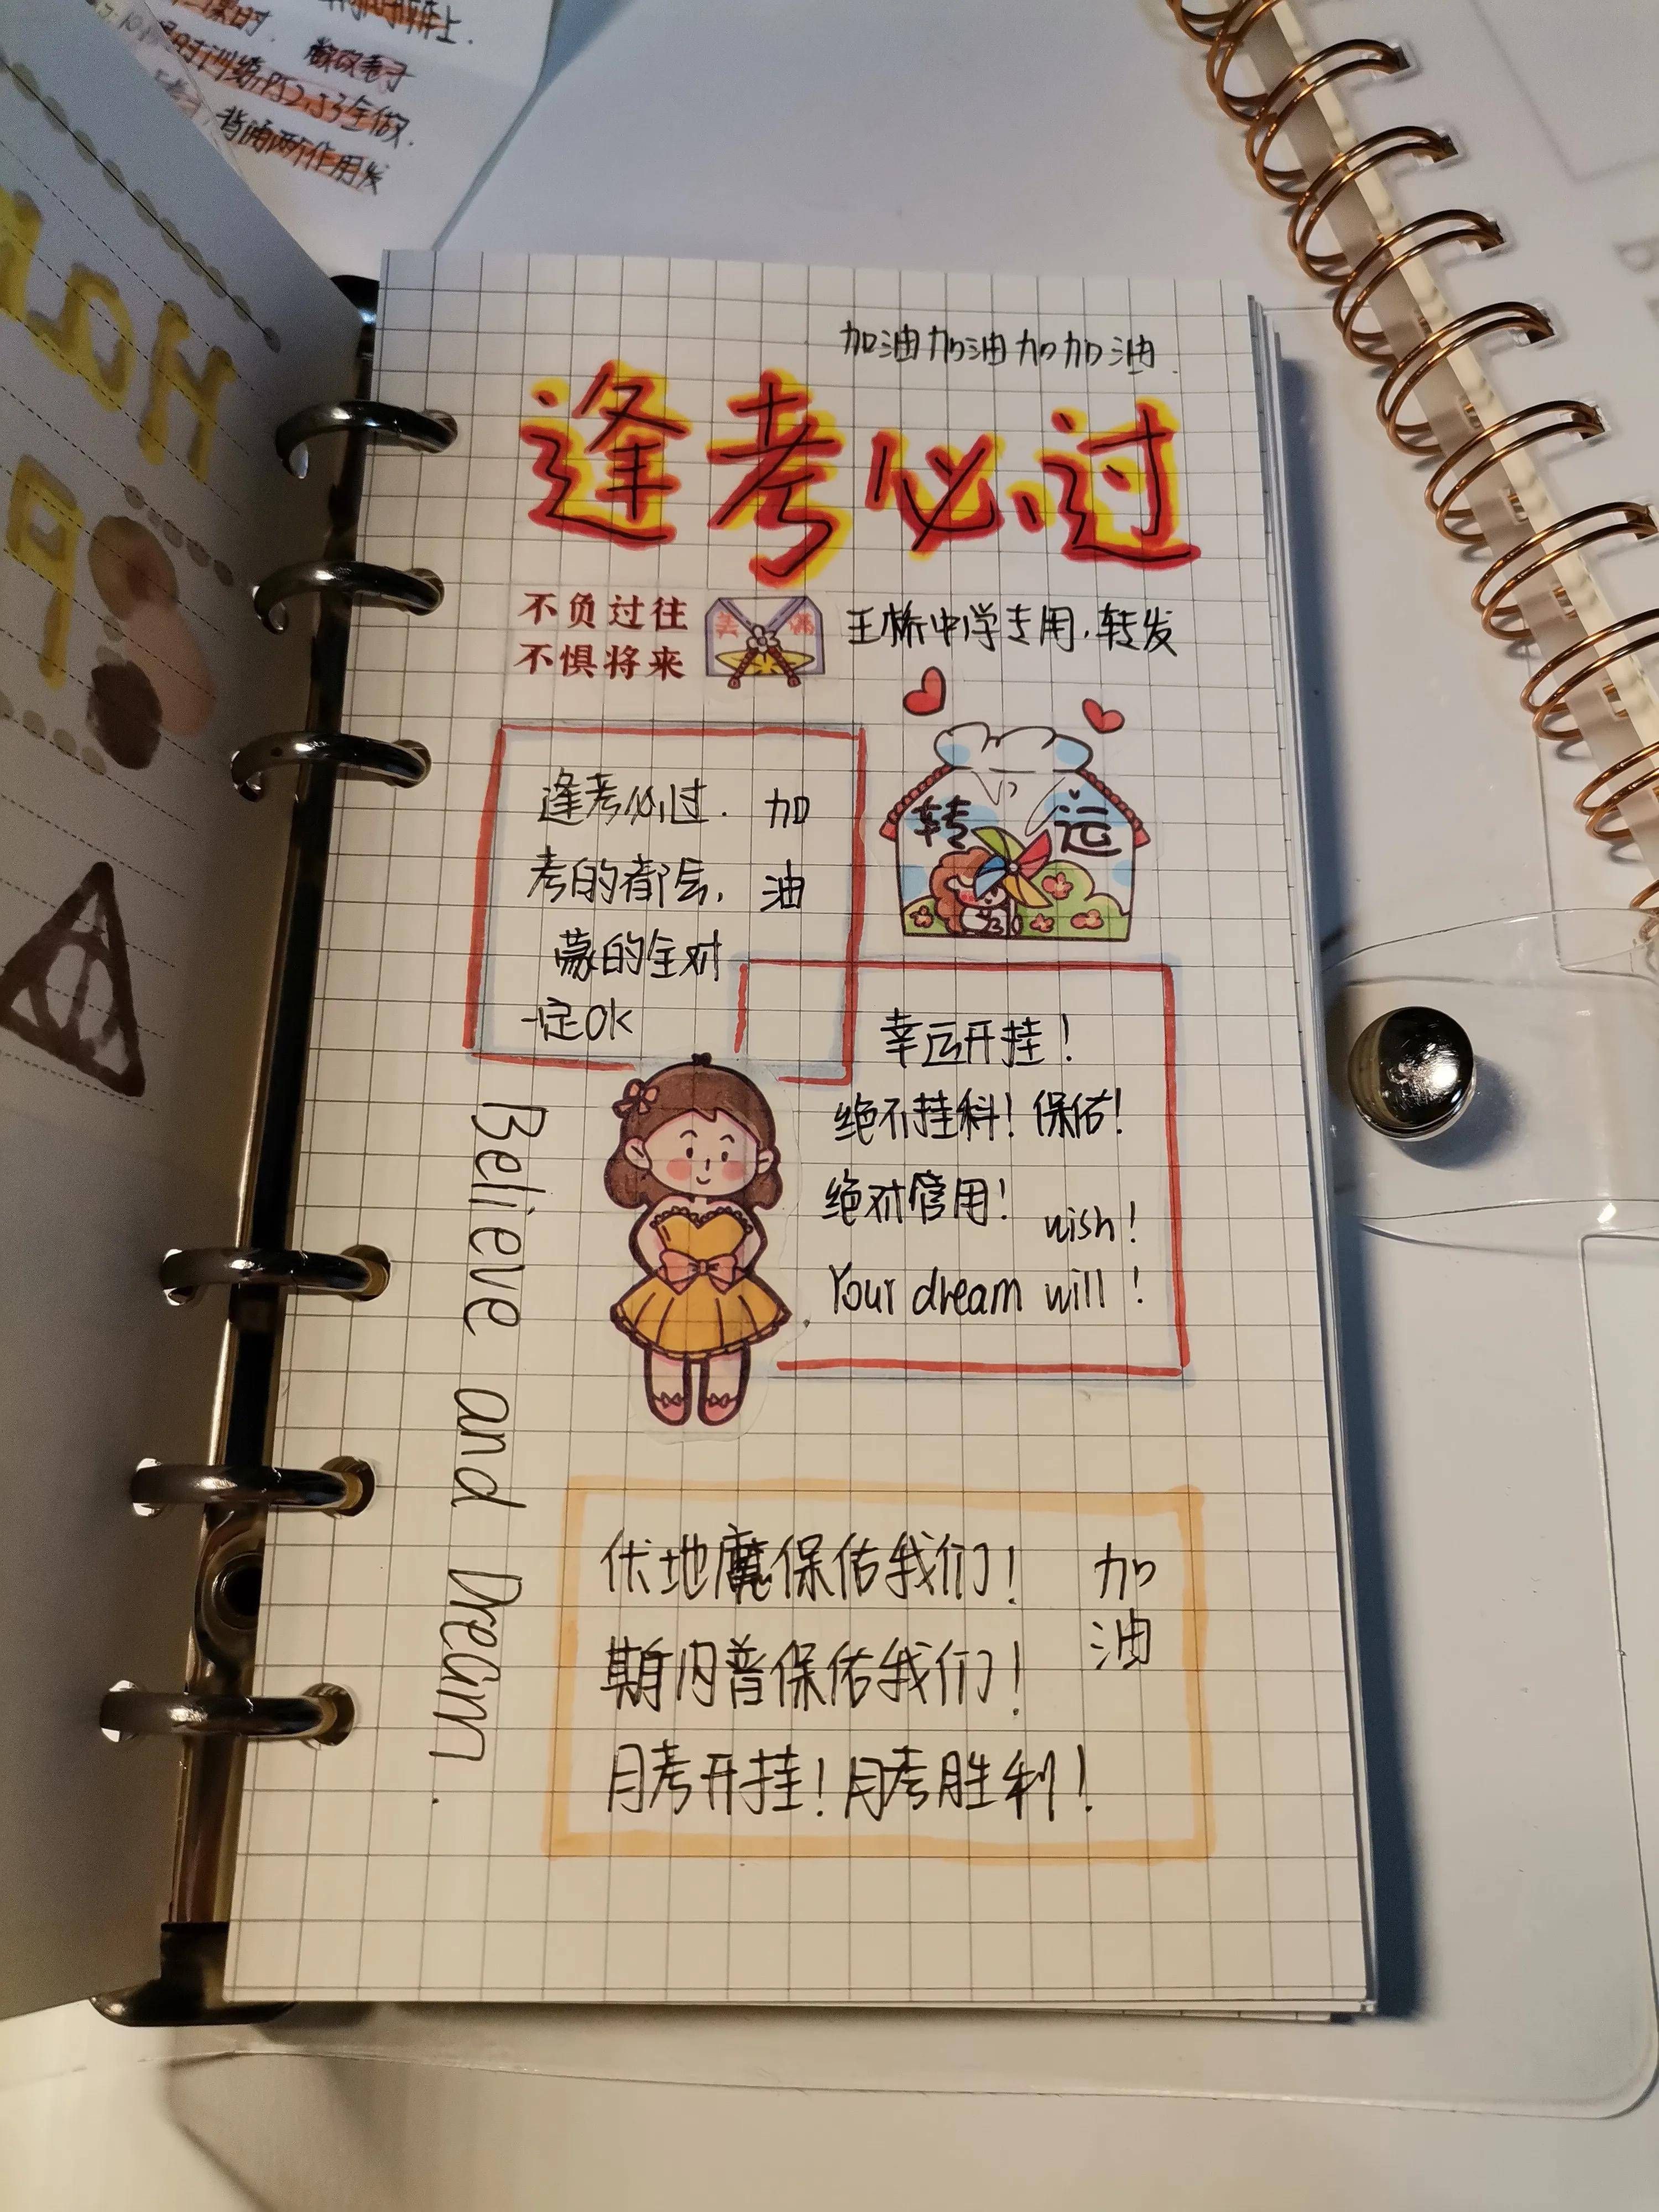 加油加油加加油
逢考必过
不负过往
不惧将来
王桥中学专用，转发
转运
逢考必过.
考的都会,
蒙的全对
一定OK
加油
幸运开挂！
绝不挂科！保佑！
绝对管用！
wish！
Your dream will！
Believe and Dream.
伏地魔保佑我们！
斯内普保佑我们！
月考开挂！月考胜利！
加油
全做.
背诵